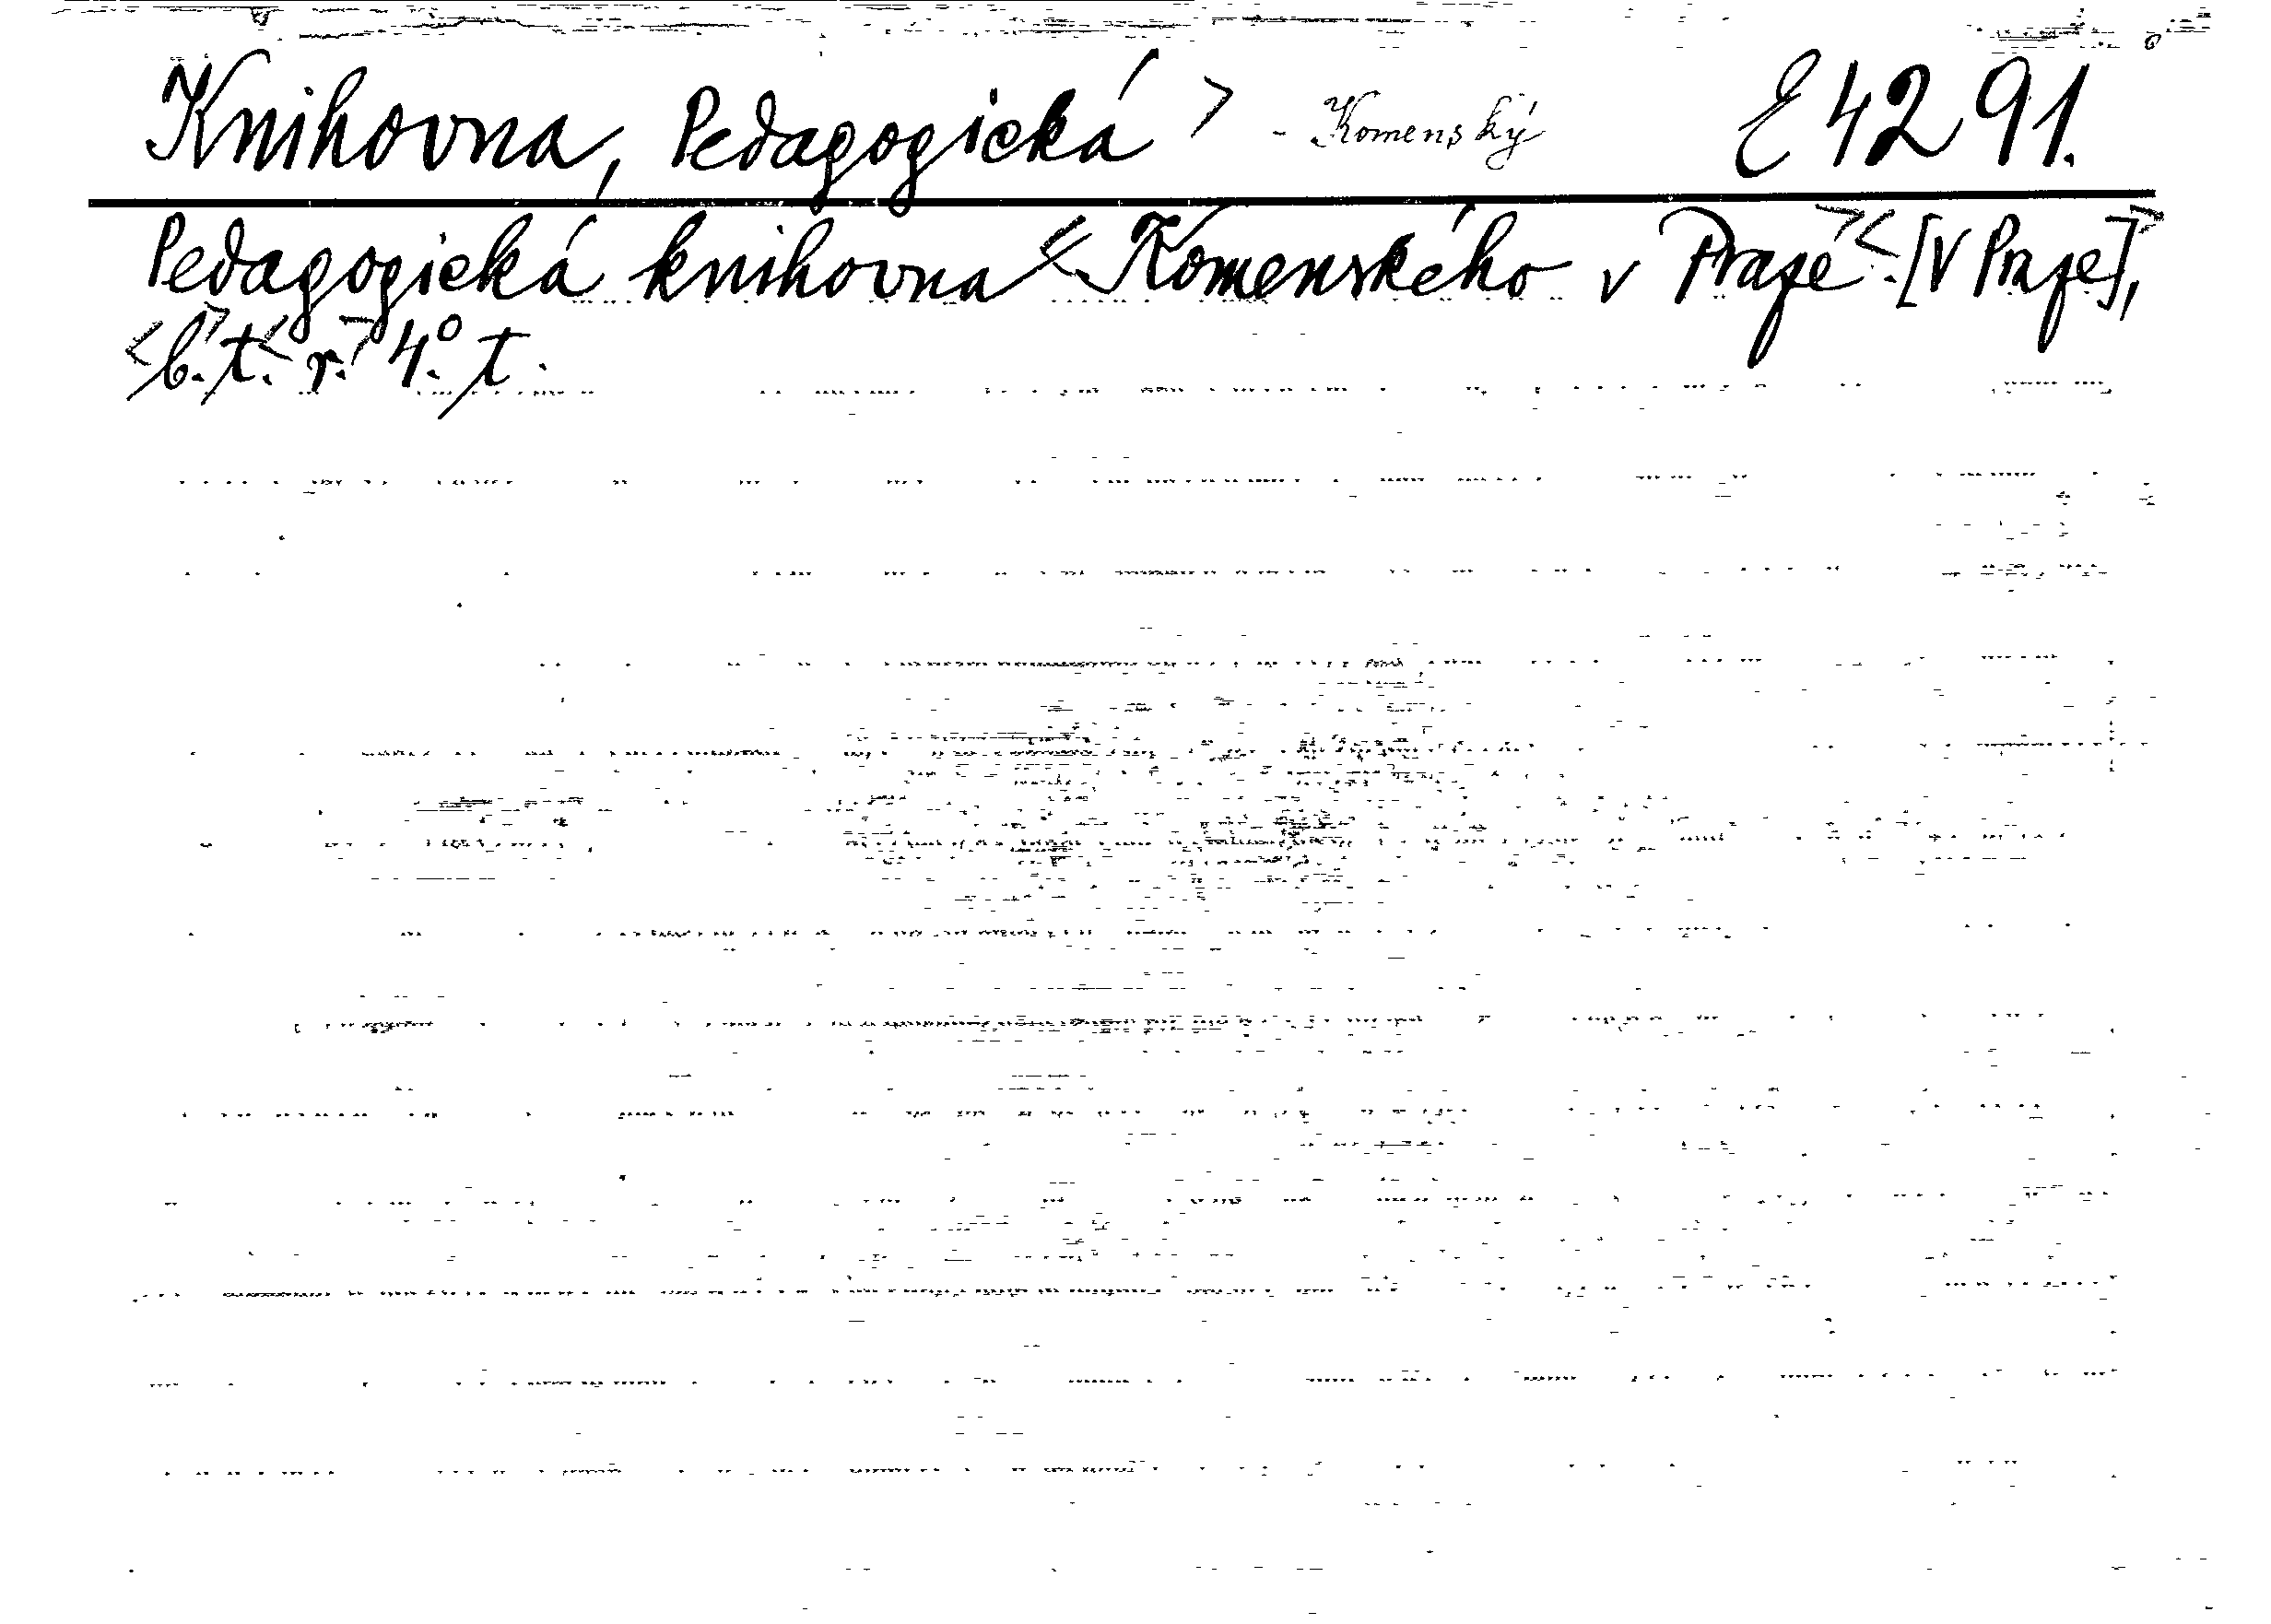 Knihovna, Pedagogická > - Komenský E 4291.
Pedagogická knihovna < Komenského v Praze > <. [V Praze] >,
<b.> t. <r.> 4.° t.